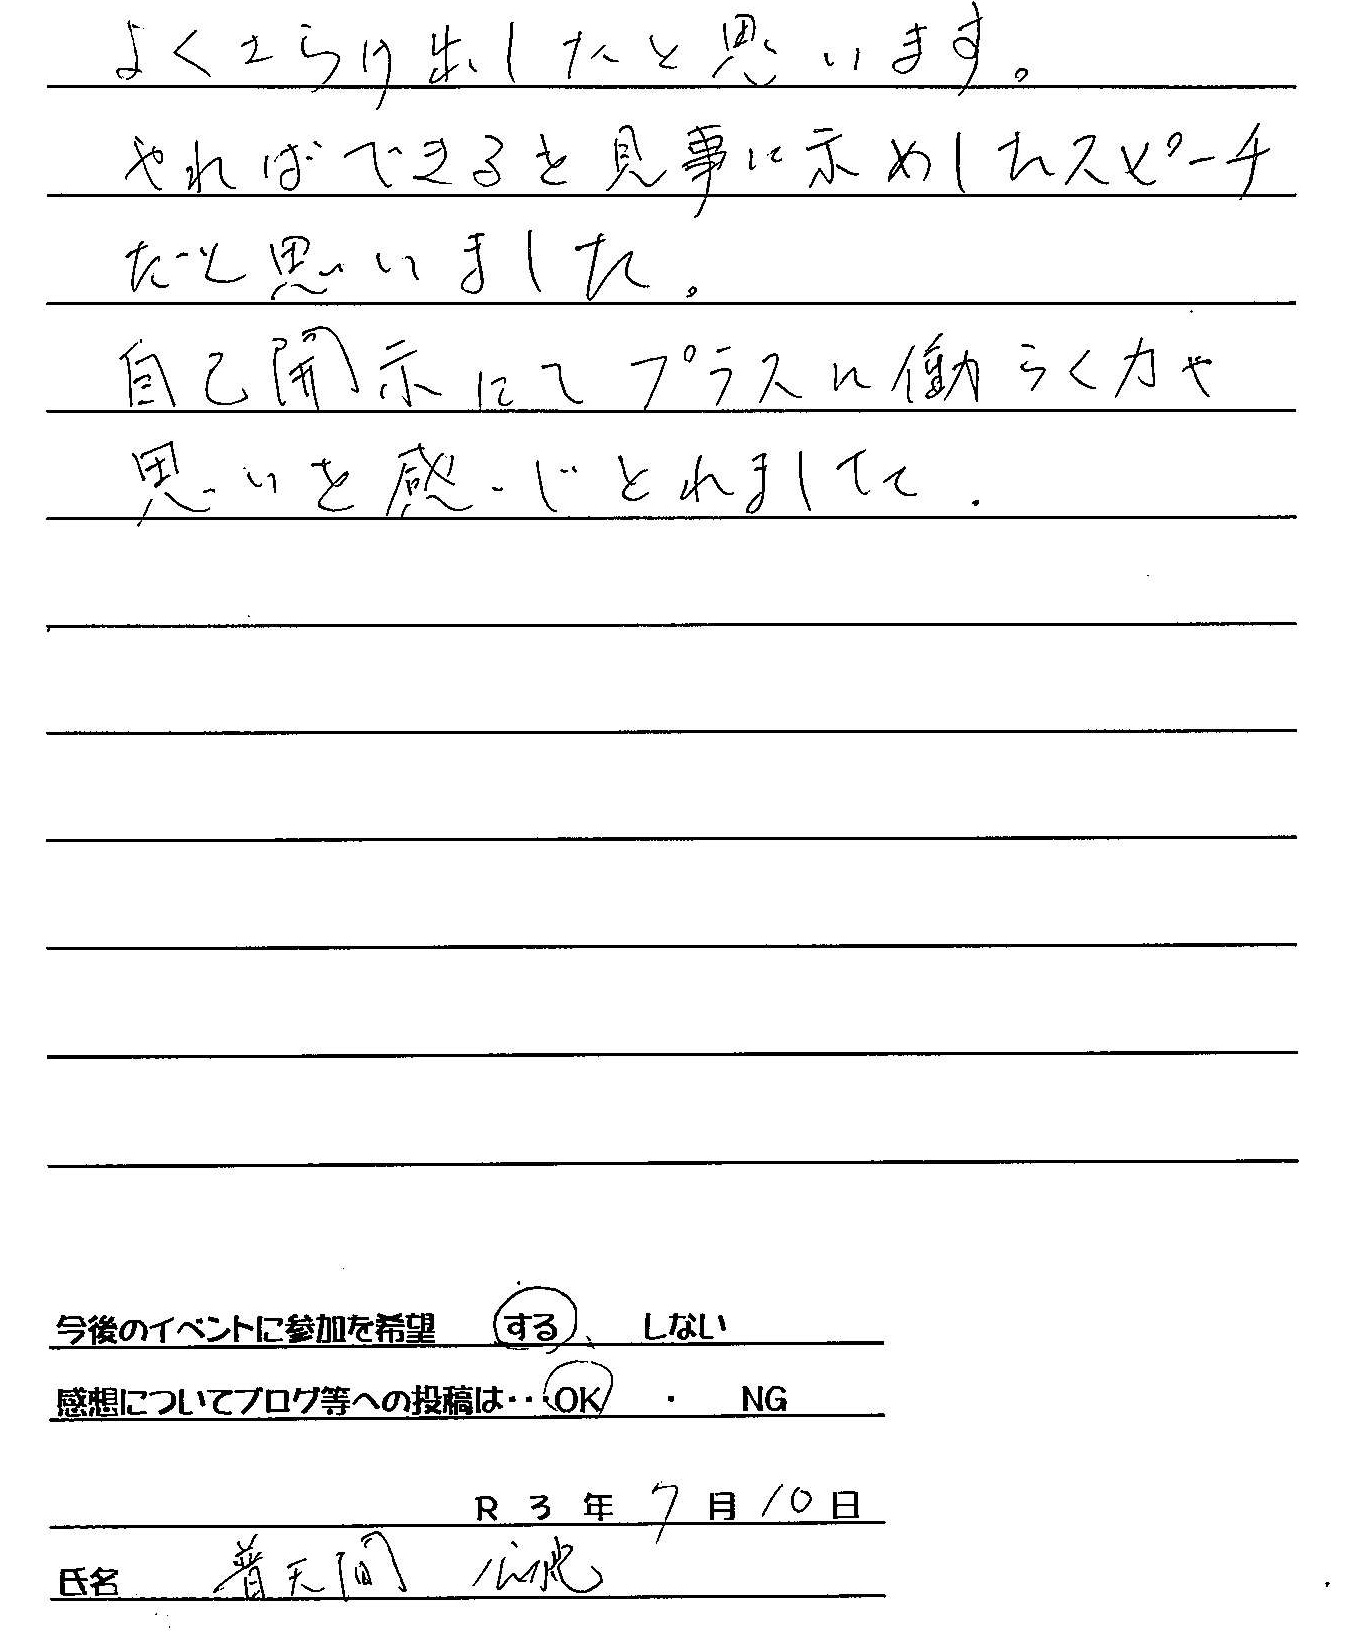 よくさらけ出したと思います。
やればできるを見事に示めしたスピーチ
だと思いました。
自己開示にてプラスに働らく力や
思いを感じとれました.
今後のイベントに参加を希望 する、 しない
感想についてブログ等への投稿は・・・OK ・ NG
R 3 年 7 月 10 日
氏名 普天間 広